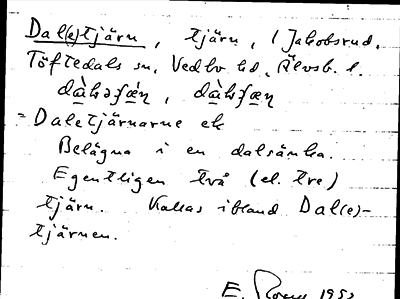 Dal(e)tjärn, tjärn, i Jakobsrud.
Töftedals sn, Vedbo hd, Älvsb. l.
= Daletjärnarne ek
Belägna i en dalsänka.
Egentligen två (el. tre)
tjärn. Kallas ibland Dal(e)-
tjärnen.
E. 1952